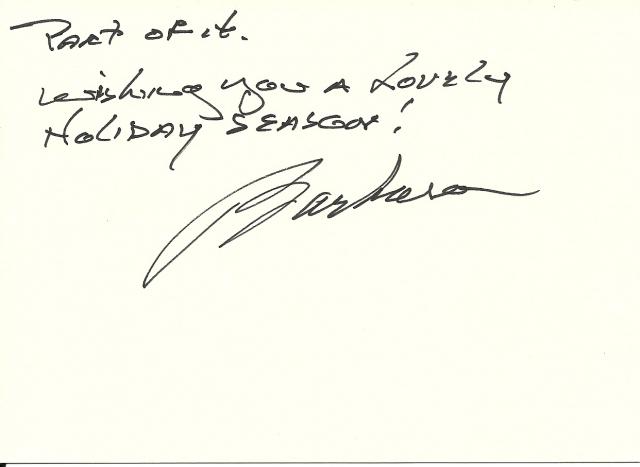 PART OF it.
wishing you A Lovely
HOLIDAY SEASON!
Barbara